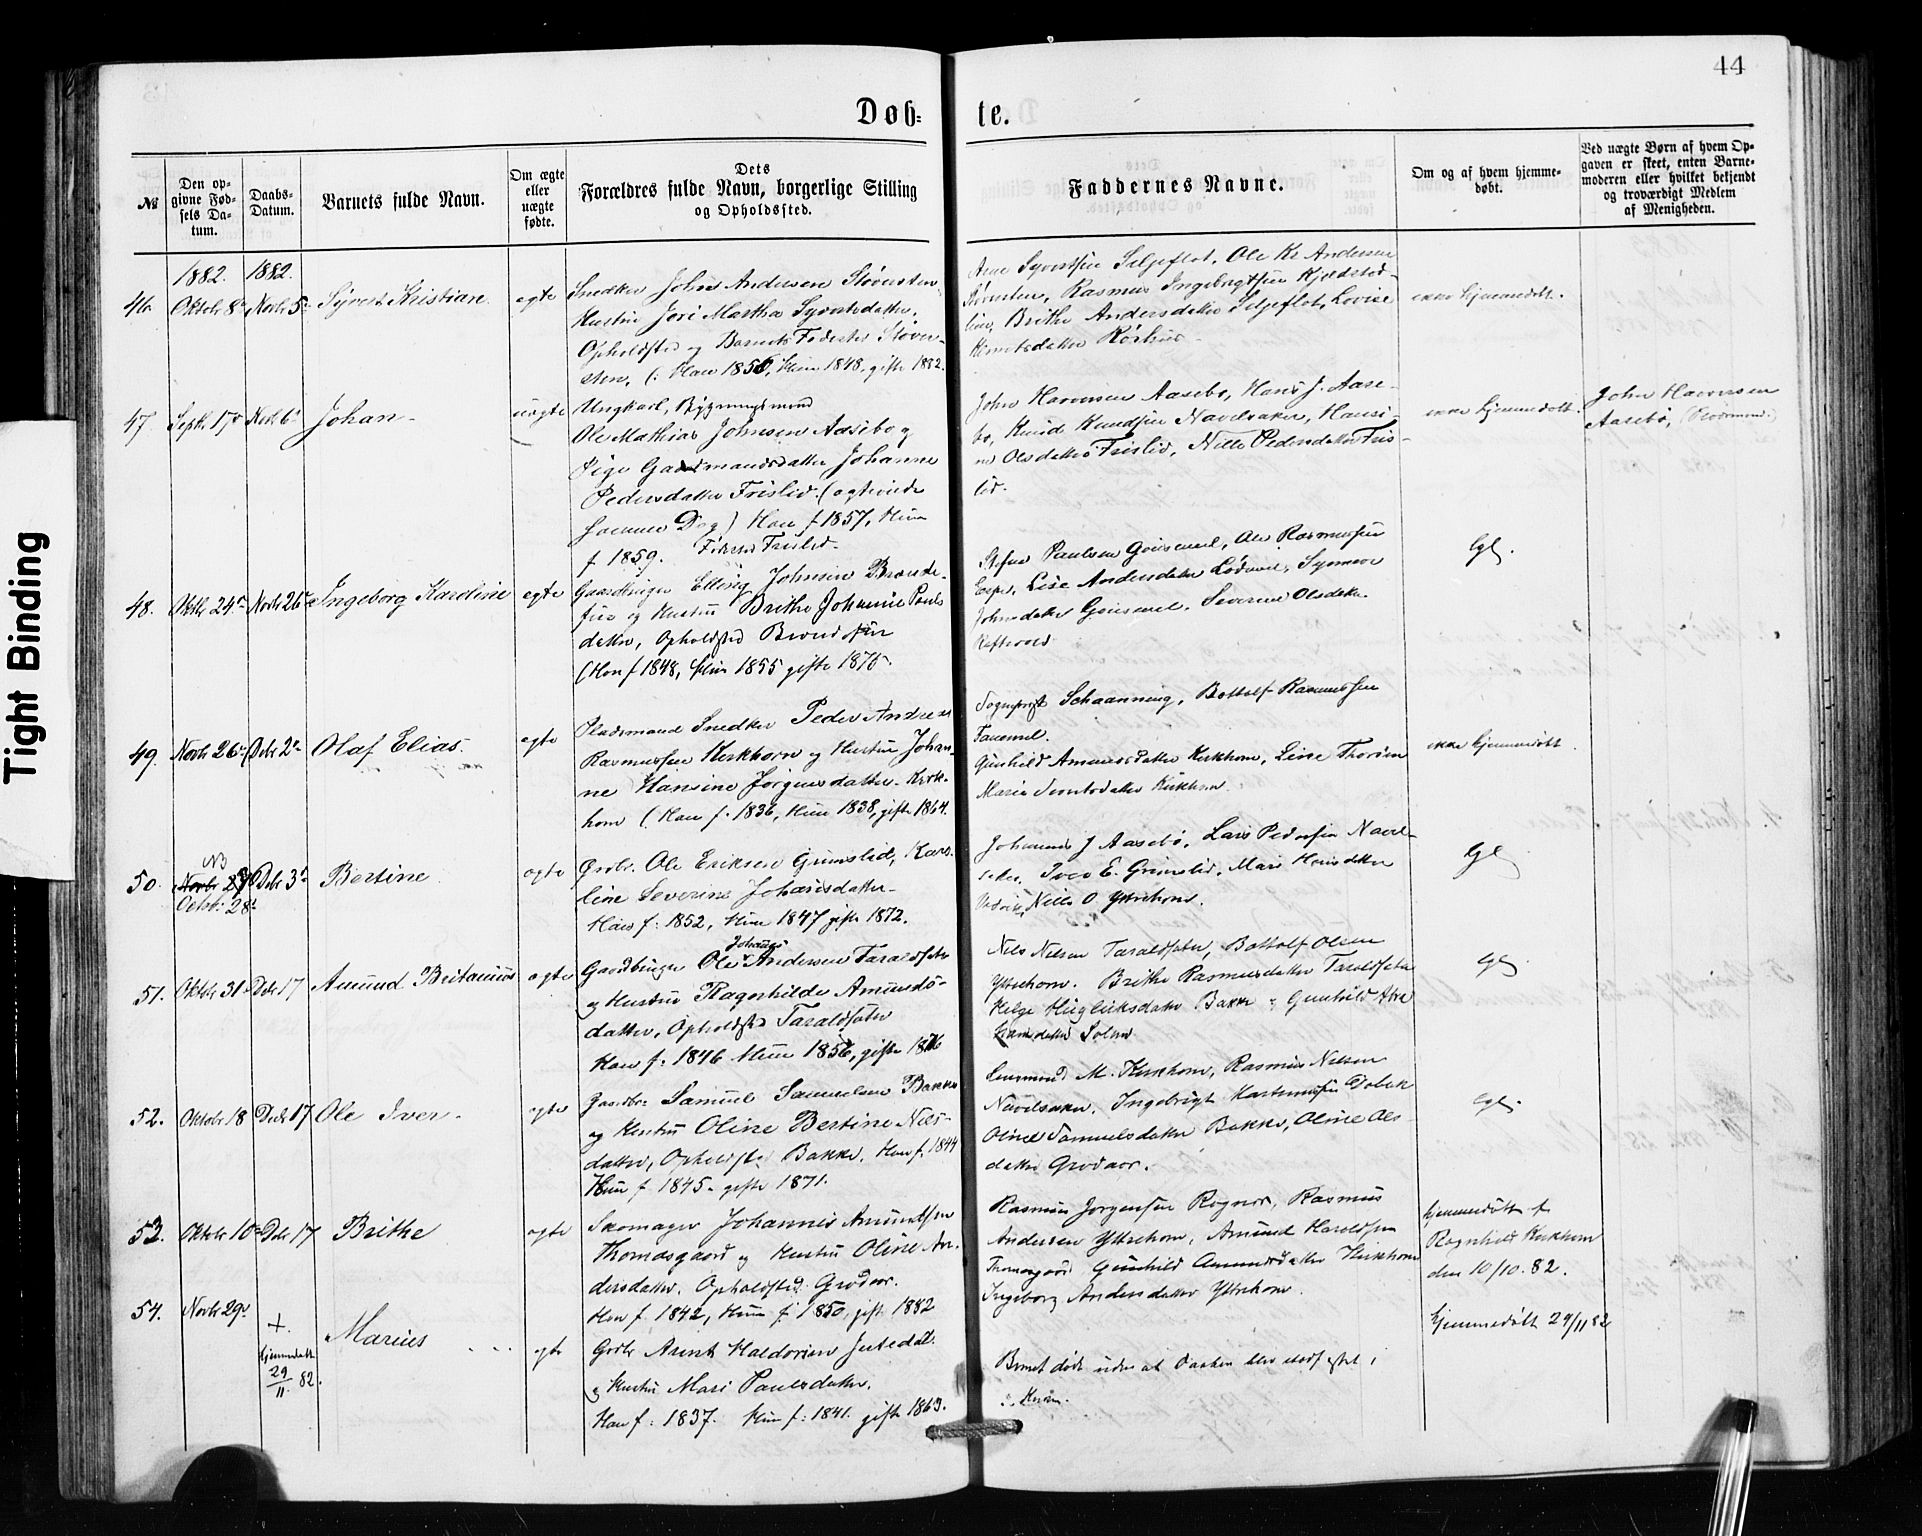 44
Døb=
te.
№
Den op-
givne Fød-
sels Da-
tum.
Daabs-
Datum.
Barnets fulde Navn.
Om ægte
eller
uægte
fødte.
Dets
Forældres fulde Navn, borgerlige Stilling
og Opholdssted.
Faddernes Navne.
Om og af hvem hjemme-
døbt.
Ved uægte Børn af hvem Op-
gaven er skeet, enten Barne-
moderen eller hvilket bekjendt
og troværdigt Medlem
af Menigheden.
1882. 1882.
46. Oktbr 8de Novbr 5te Syvert Kristian egte
Snedker John Andersen Støversten,
Hustru Jori Martha Syvertsdatter,
Opholdsted og Barnets Fødested Støver-
sten, (: Han 1856, Hun 1848, gifte 1882.
Arne Syvertsen Seljeflot, Ole Kr Andersen
Støversten, Rasmus Ingebrigtsen Kjeldstad-
lien, Brithe Andersdatter Seljeflot, Lovise
Rørhus
ikke hjemmedøbt.
47. Septbr 17de Novbr 6te Johan uegte
Ungkarl, Bygningsmand
Ole Mathias Johnsen Aasebø og
Pige Gaardmandsdatter Johanne
Pedersdatter Frislid. (egteviede
samme Dag) Han f 1857, Hun
f 1859. Fødested Frislid.
John Haversen Aasebø, Hans J. Aase-
bø, Knud Knudsen Navelsaker, Hansi-
ne Olsdatter Frislid, Nille Pedersdatter Fris-
lid.
ikke hjemmedøbt.
John Haversen
Aasebø,
48. Oktbr 24de Novbr 26de Ingeborg Karoline egte
Gaardbruger Elling Johnsen Brande-
og Hustru Brithe Johanne Pauls
datter, Opholdsted
(Han f 1848, Hun 1855 gifte 1875.
Stefan Paulsen Ole Rasmussen
Espe, Lise Andersdatter Synneve
Johnsdatter Severine Olsdatter
Heftevold
lgl.
49. Novbr 26de Debr 2den Olaf Elias. egte
Pladsmand Snedker Peder Andreas
Rasmussen Kirkhorn og Hustru Johan-
ne Hansine Jørgensdatter Kirk-
horn (Han f. 1836, Hun 1838, gifte 1864.
Sogneprest Schaanning, Bottolf Rasmussen
Faenmel.
Gunhild Amundsdatter Kirkhorn, Lise Thorsen
Marie Kirkhorn
ikke hjemmedøbt.
NB
50. Novbr 27 Debr 3de Bertine egte
Octbr: 28de
Grdbr. Ole Eriksen Grimslid, Karo-
line Severine Johansdatter
Han f: 1852, Hun 1847 gifte 1872.
Johannes J Aasebø, Lars Pedersen Navel-
saker, Iver E. Grimslid, Mari Hansdatter
Nille O Yttrehorn.
lgl
51. Oktbr 31te Debr 17 Amund Britanius egte
Johannes
Gaardbruger Ole Andersen Taraldsæter
og Hustru Ragnhilde Amunds-
datter, Opholdsted Taraldsæter
Han f: 1846 Hun 1856, gifte 1876
Nils Nilsen Taraldsæter, Bottolf Olsen
Yttrehorn. Brithe Rasmusdatter Taraldsæter
Helge Hugleiksdatter Bakke & Gunhild Abra
hamsdatter Solem
lgl
52. Oktbr 18 Debr 17 Ole Iver egte
Gaardbr Samuel Samuelsen Bakke
og Hustru Oline Bertine Nils-
datter, Opholdsted Bakke. Han f. 1844
Hun f 1845 gifte 1871.
Lensmand M. Kirkhorn, Rasmus Nilsen
Navelsaker, Ingebrigt Karstensen
Oline Samuelsdatter Bakke, Oline Ols-
datter Grodaas.
lgl.
53. Oktbr 10de Debr 17 Brithe egte
Skomager Johannes Amundsen
Thomasgaard og Hustru Oline An-
dersdatter. Opholdsted: Grodaas.
Han f. 1842, Hun f. 1850, gift 1882
Rasmus Jorgensen Rognes, Rasmus
Andersen Yttrehorn, Amund Haraldsen
Thomasgaard Gunhild Amundsdatter Kirkhorn
Ingeborg Andersdatter Yttrehorn.
hjemmedøbt af
Ragnhild Kirkhorn
den 10/10. 82.
54. Novbr 29de + Marius egte
hjemmedøbt
29/11. 82.
Grdbr Arent Haldorsen Jutedal
& Hustru Mari Paulsdatter.
Han f: 1837. Hun f: 1841. gifte 1863.
Barnet døde uden at Daaben blev stadfæstet i
Kirken.
hjemmedøbt 29/11 82
Tight Binding